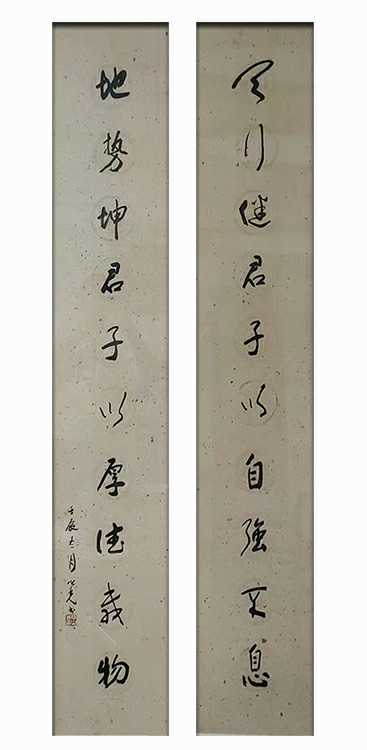 天行健君子以自強不息
地势坤君子以厚德载物
壬辰年月